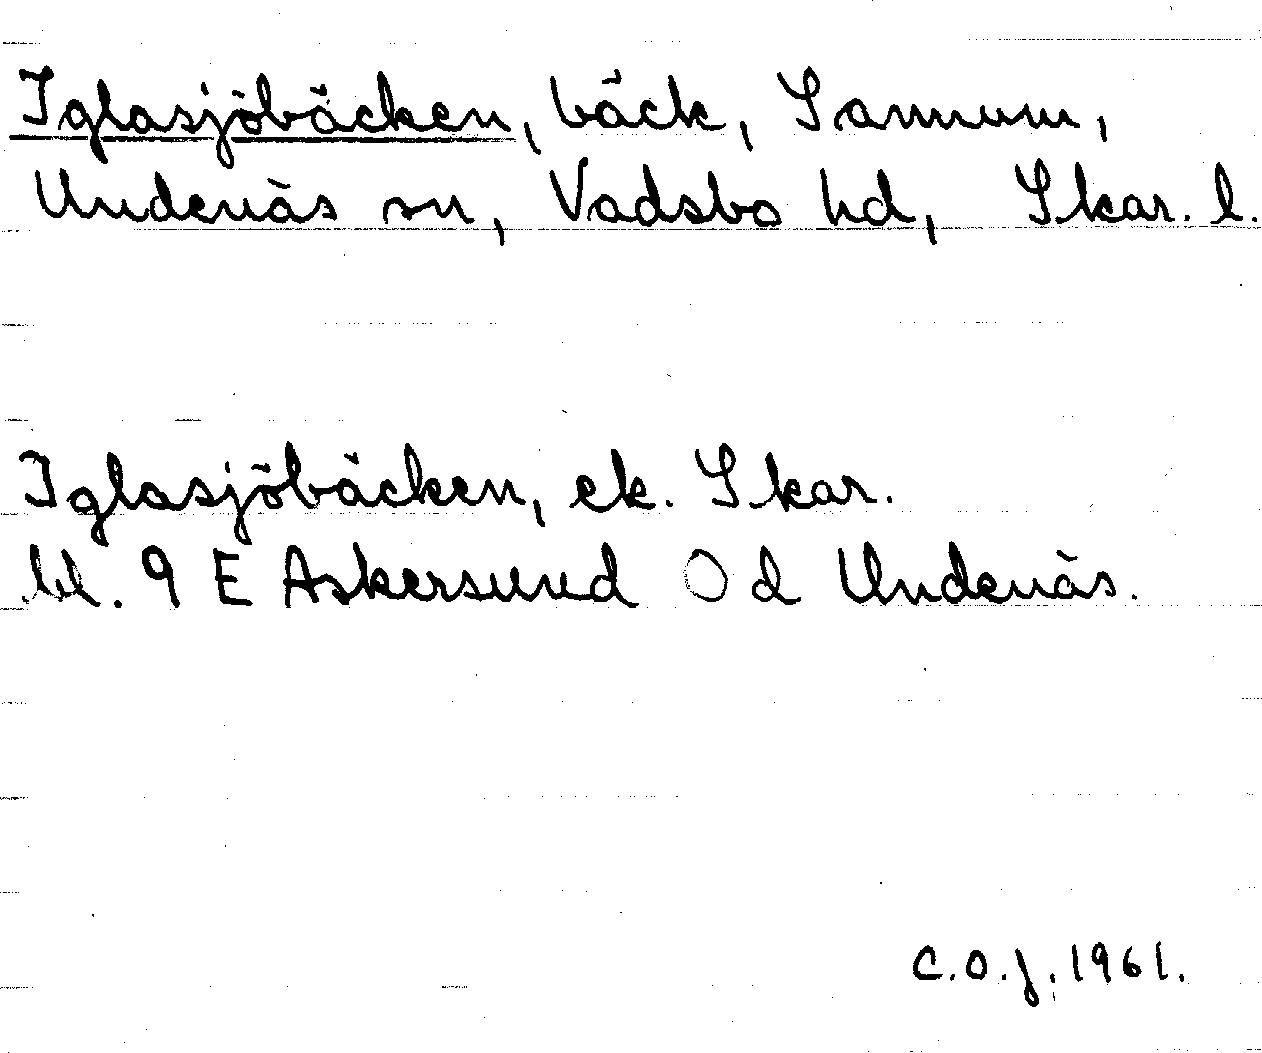 Iglasjöbäcken, bäck, Sannum,
Undenäs sn, Vadsbo hd, Skar. l.
Iglasjöbäcken, ek. Skar.
bl. 9 E Askersund 0 d Undenäs.
C.O.J. 1961.